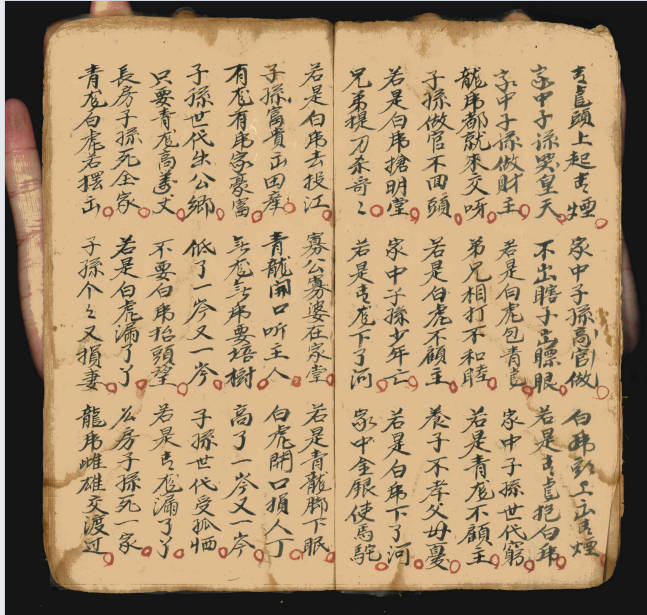 青龍頭上起青煙 家中子孫高官做 白虎頭上出青煙
家中子孫哭皇天 不出瞎子出瞟眼 若是青龍抱白虎
家中子孫做財主 若是白虎包青龍 家中子孫世代窮
龍虎都就來交呀 弟兄相打不和睦 若是青龙不顧主
子孫做官不回頭 若是白虎不顧主 養子不孝父母憂
若是白虎搶明堂 家中子孫少年亡 若是白虎下了河
兄弟提刀杀哥々 若是青龙下了河 家中金銀使馬駝
若是白虎去投江 寡公寡婆在家堂 若是青龍脚下眠
子孫富貴出田庄 青龍開口听主人 白虎開口損人丁
有龙有虎家豪富 无龙无虎要樹 高了一岑又一岑
子孫世代出公鄉 低了一岑又一岑 子孫世代受孤恓
只要青龙高萬丈 不要白虎抬頭望 若是青龙漏了丫
長房子孫死全家 若是白虎漏了丫 公房子孫死一家
青龙白虎若摆出 子孫个々又損妻 龍虎雌雄交渡过